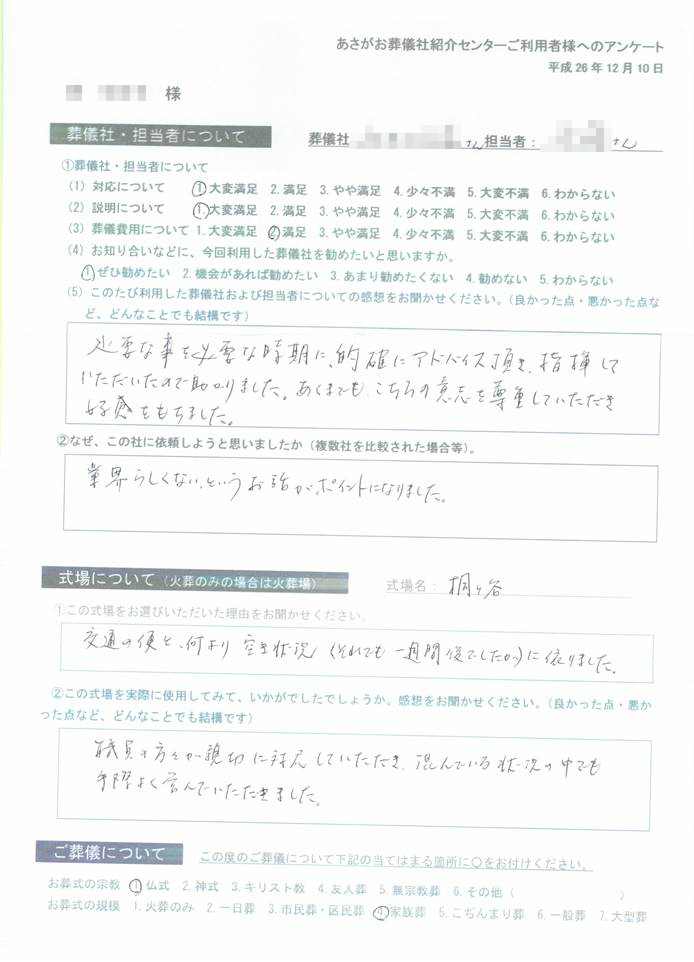 あさがお葬儀社紹介センターご利用者様へのアンケート
平成26年12月10日
様
葬儀社・担当者について
葬儀社 さん 担当者: さん
①葬儀社・担当者について
(1) 対応について 1.大変満足 2.満足 3.やや満足 4.少々不満 5.大変不満 6.わからない
(2) 説明について 1.大変満足 2.満足 3.やや満足 4.少々不満 5.大変不満 6.わからない
(3) 葬儀費用について 1.大変満足 2.満足 3.やや満足 4.少々不満 5.大変不満 6.わからない
(4) お知り合いなどに、今回利用した葬儀社を勧めたいと思いますか。
1.ぜひ勧めたい 2.機会があれば勧めたい 3.あまり勧めたくない 4.勧めない 5.わからない
(5) このたび利用した葬儀社および担当者についての感想をお聞かせください。(良かった点・悪かった点な
ど、どんなことでも結構です)
必要な事を必要な時期に、的確にアドバイス頂き、指揮して
いただいたので助かりました。あくまでもこちらの意志を尊重していただき
好感をもちました。
②なぜ、この社に依頼しようと思いましたか(複数社を比較された場合等)。
業界らしくない、というお話が、ポイントになりました。
式場について(火葬のみの場合は火葬場)
式場名: 桐ヶ谷
①この式場をお選びいただいた理由をお聞かせください。
交通の便と、何より 空き状況 (それでも 一週間後でしたが)に依りました。
②この式場を実際に使用してみて、いかがでしたでしょうか。感想をお聞かせください。(良かった点・悪か
った点など、どんなことでも結構です)
職員の方々が親切に対応していただき、混んでいる状況の中でも
手際よく営んでいただきました。
ご葬儀について
この度のご葬儀について下記の当てはまる箇所に○をお付けください。
お葬式の宗教 1.仏式 2.神式 3.キリスト教 4.友人葬 5.無宗教葬 6.その他( )
お葬式の規模 1.火葬のみ 2.一日葬 3.市民葬・区民葬 4.家族葬 5.こぢんまり葬 6.一般葬 7.大型葬